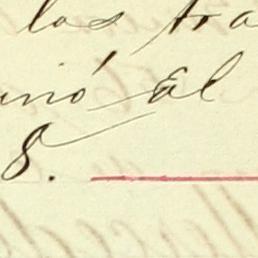 las tra
inó El
8.